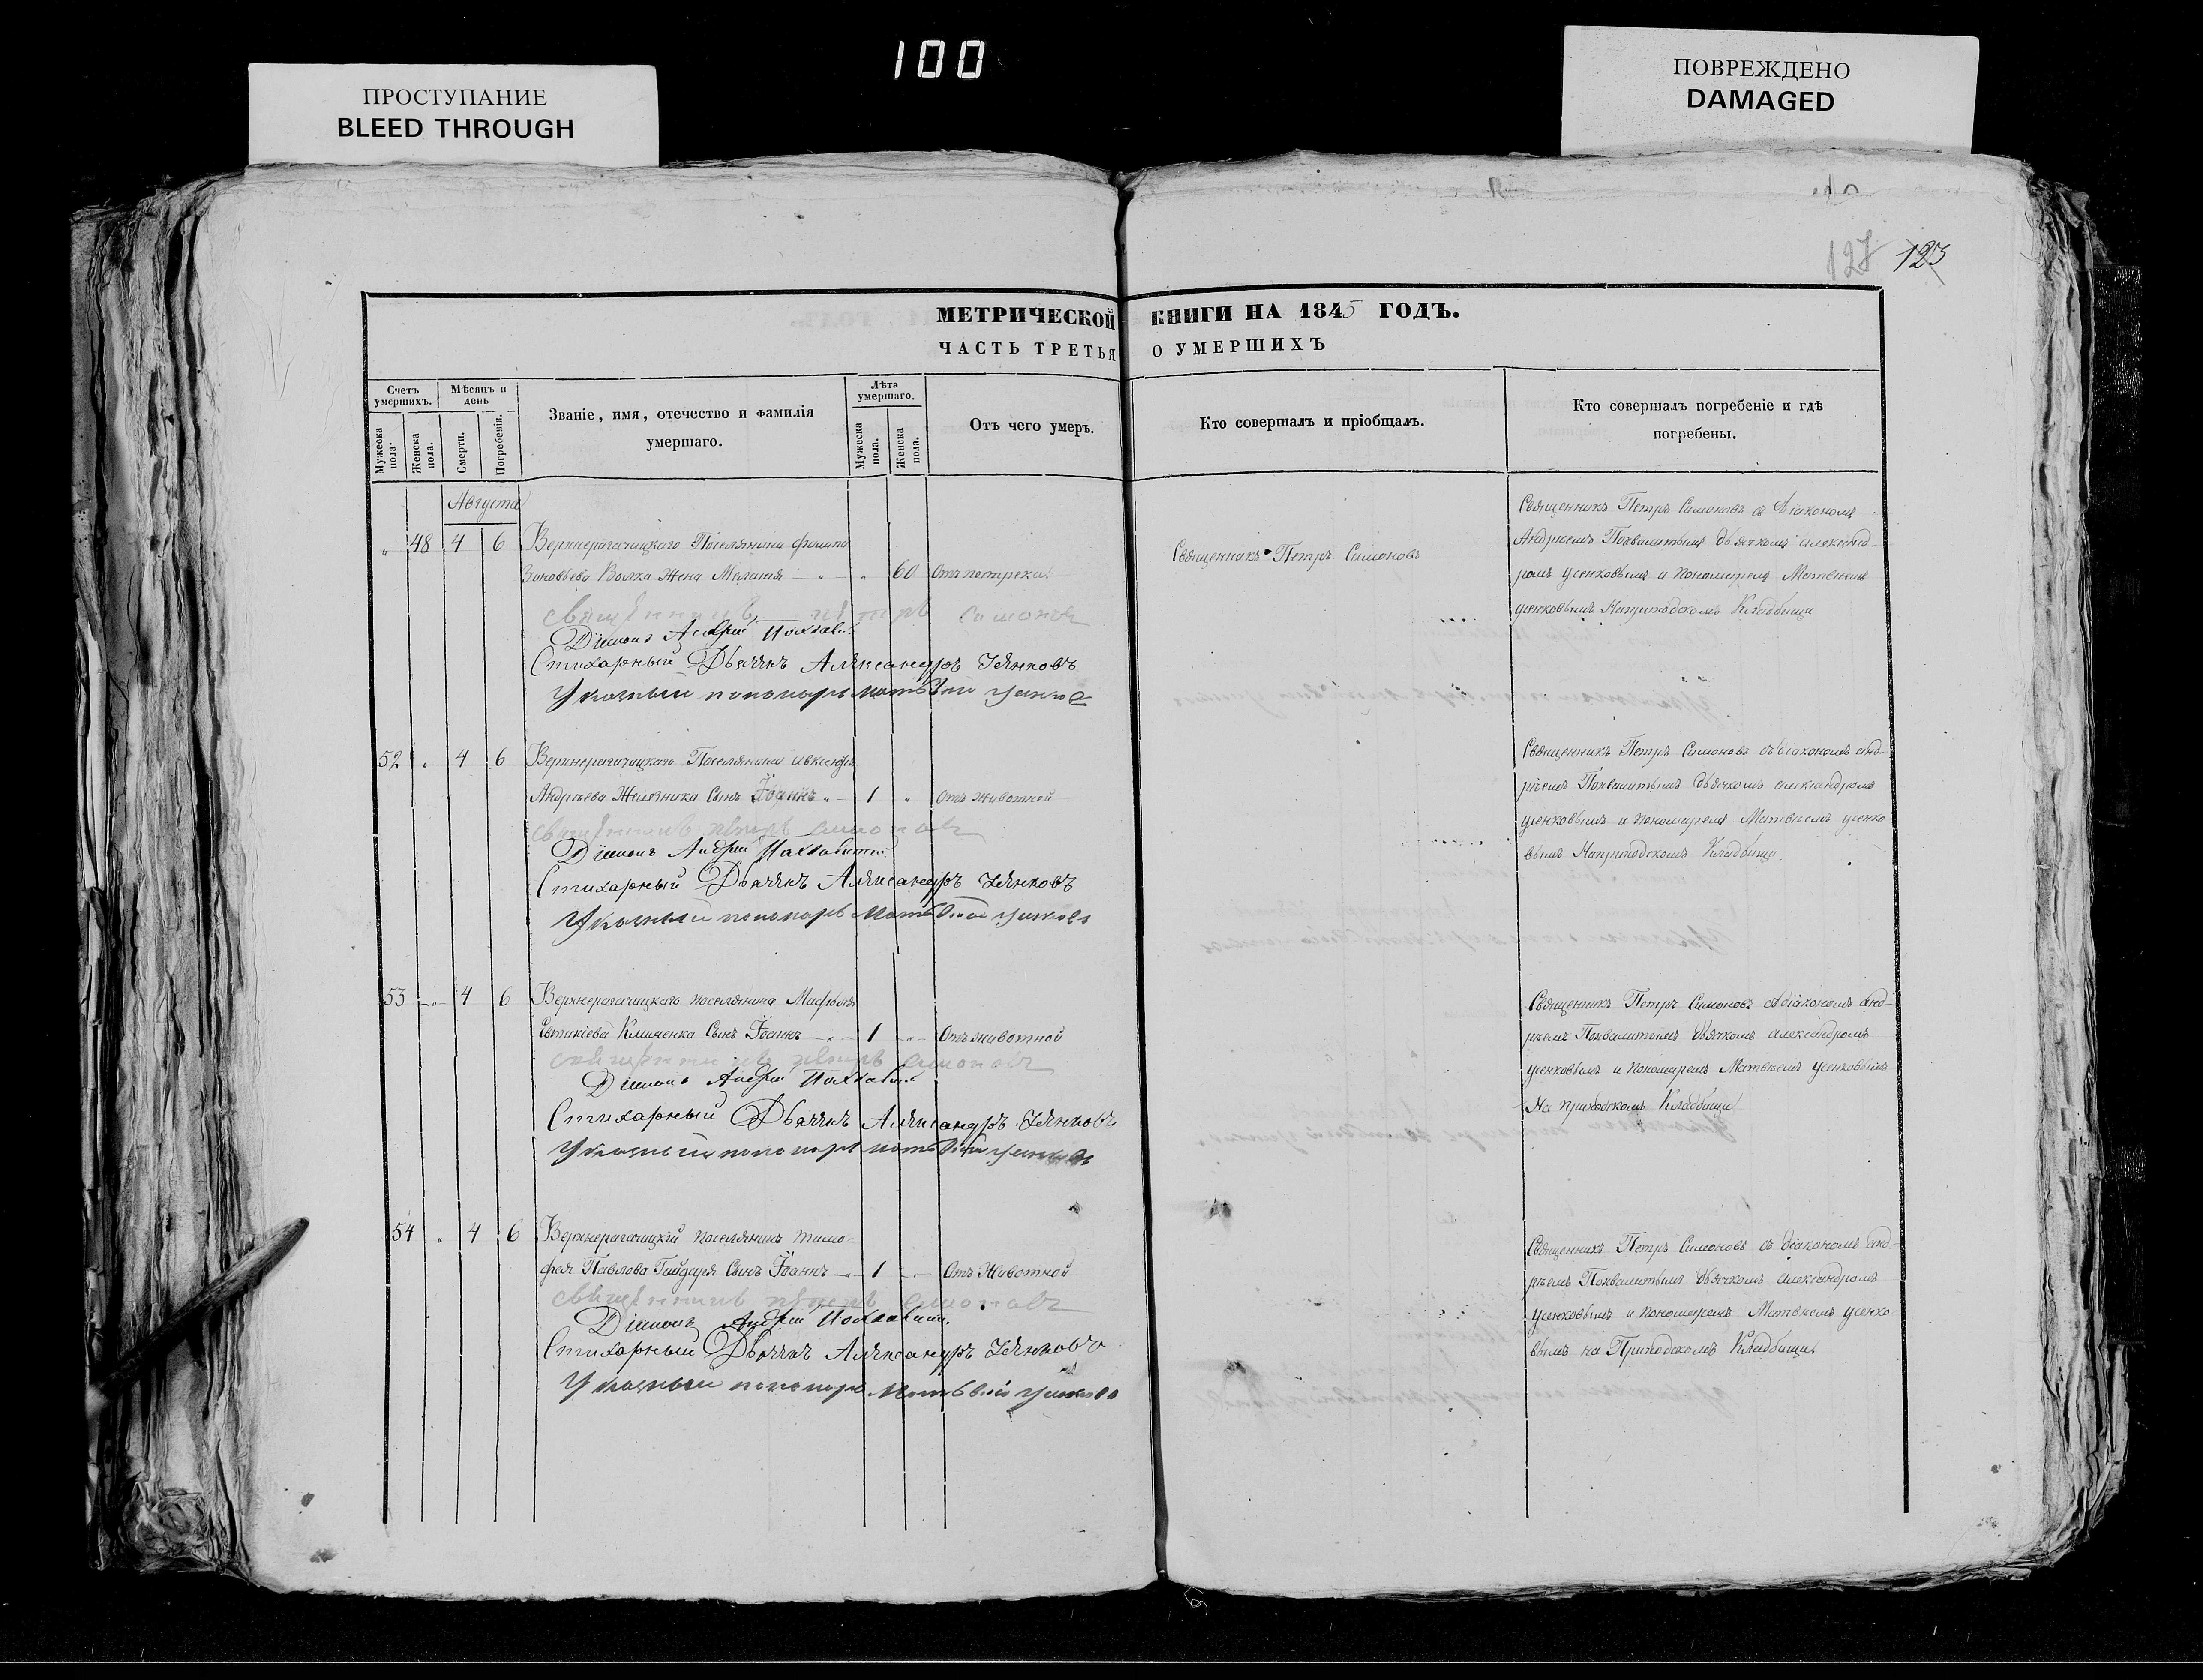 100
ПРОСТУПАНИЕ
BLEED THROUGH
ПОВРЕЖДЕНО
DAMAGED
127 123
МЕТРИЧЕСКОЙ КНИГИ НА 1845 ГОДЪ.
ЧАСТЬ ТРЕТЬЯ О УМЕРШИХЪ
Счетъ умершихъ.
Мужеска пола.
Женска пола.
Мѣсяцъ и день
Смерти.
Погребенія.
Званіе, имя, отечество и фамилія
умершаго.
Лѣта умершаго.
Мужеска пола.
Женска пола.
Отъ чего умеръ.
Кто совершалъ и пріобщалъ.
Кто совершалъ погребеніе и гдѣ
погребены.
Августа
„ 48 4 6 Верхнерагачицкаго Поселянина Филипа
Зиновьева Волка Жена Меланія „ 60
Священникъ Петръ Симоновъ
Священникъ Петръ Симоновъ съ Діакономъ
Андреемъ Похвалитымъ дьячкомъ Александ-
ромъ Усенковымъ и Пономаремъ Матвеемъ
Усенковымъ На приходскомъ Кладбищи
священникъ петръ симоновъ
Діаконъ Андрей Похвалит
Стихарный Дьячекъ Александръ Усенковъ
Указный пономарь матвѣй усенков
52 „ 4 6 Верхнерагачицкаго Поселянина Авксентія
Андреева Железника Сынъ Іоаннъ „ 1 „ Отъ животной
Священникъ Петръ Симоновъ съ діакономъ Анд-
реемъ Похвалитымъ дьячкомъ Александромъ
Усенковымъ и Пономаремъ Матвеемъ Усенко
вымъ На приходскомъ Кладбищи
священникъ петръ симоновъ
Діаконъ Андрей Похвалитый
Стихарный Дьячекъ Александръ Усенковъ
Указный пономарь матвѣй усенков
53 „ 4 6 Верхнерагачицкаго поселянина Мафтея
Евтихіева Клименка Сынъ Іоаннъ „ 1 „ Отъ животной
Священникъ Петръ Симоновъ съ діакономъ Анд-
реемъ Похвалитымъ дьячкомъ Александромъ
Усенковымъ и Пономаремъ Матвеемъ Усенковымъ
На приходскомъ Кладбищи
священникъ петръ симоновъ
Діаконъ Андрей Похвалит
Стихарный Дьячекъ Александръ Усенковъ
Указный пономарь матвѣй усенков
54 „ 4 6 Верхнерагачицкій поселянинъ Тимо
фея Павлова Гайдаря Сынъ Іоаннъ „ 1 „ Отъ Животной
Священникъ Петръ Симоновъ съ діакономъ Анд
реемъ Похвалитымъ дьячкомъ Александромъ
Усенковымъ и Пономаремъ Матвеемъ Усенко
вымъ на Приходскомъ Кладбищи
священникъ петръ симоновъ
Діаконъ Андрей Похвалит
Стихарный Дьячекъ Александръ Усенковъ
Указный пономарь матвѣй усенков